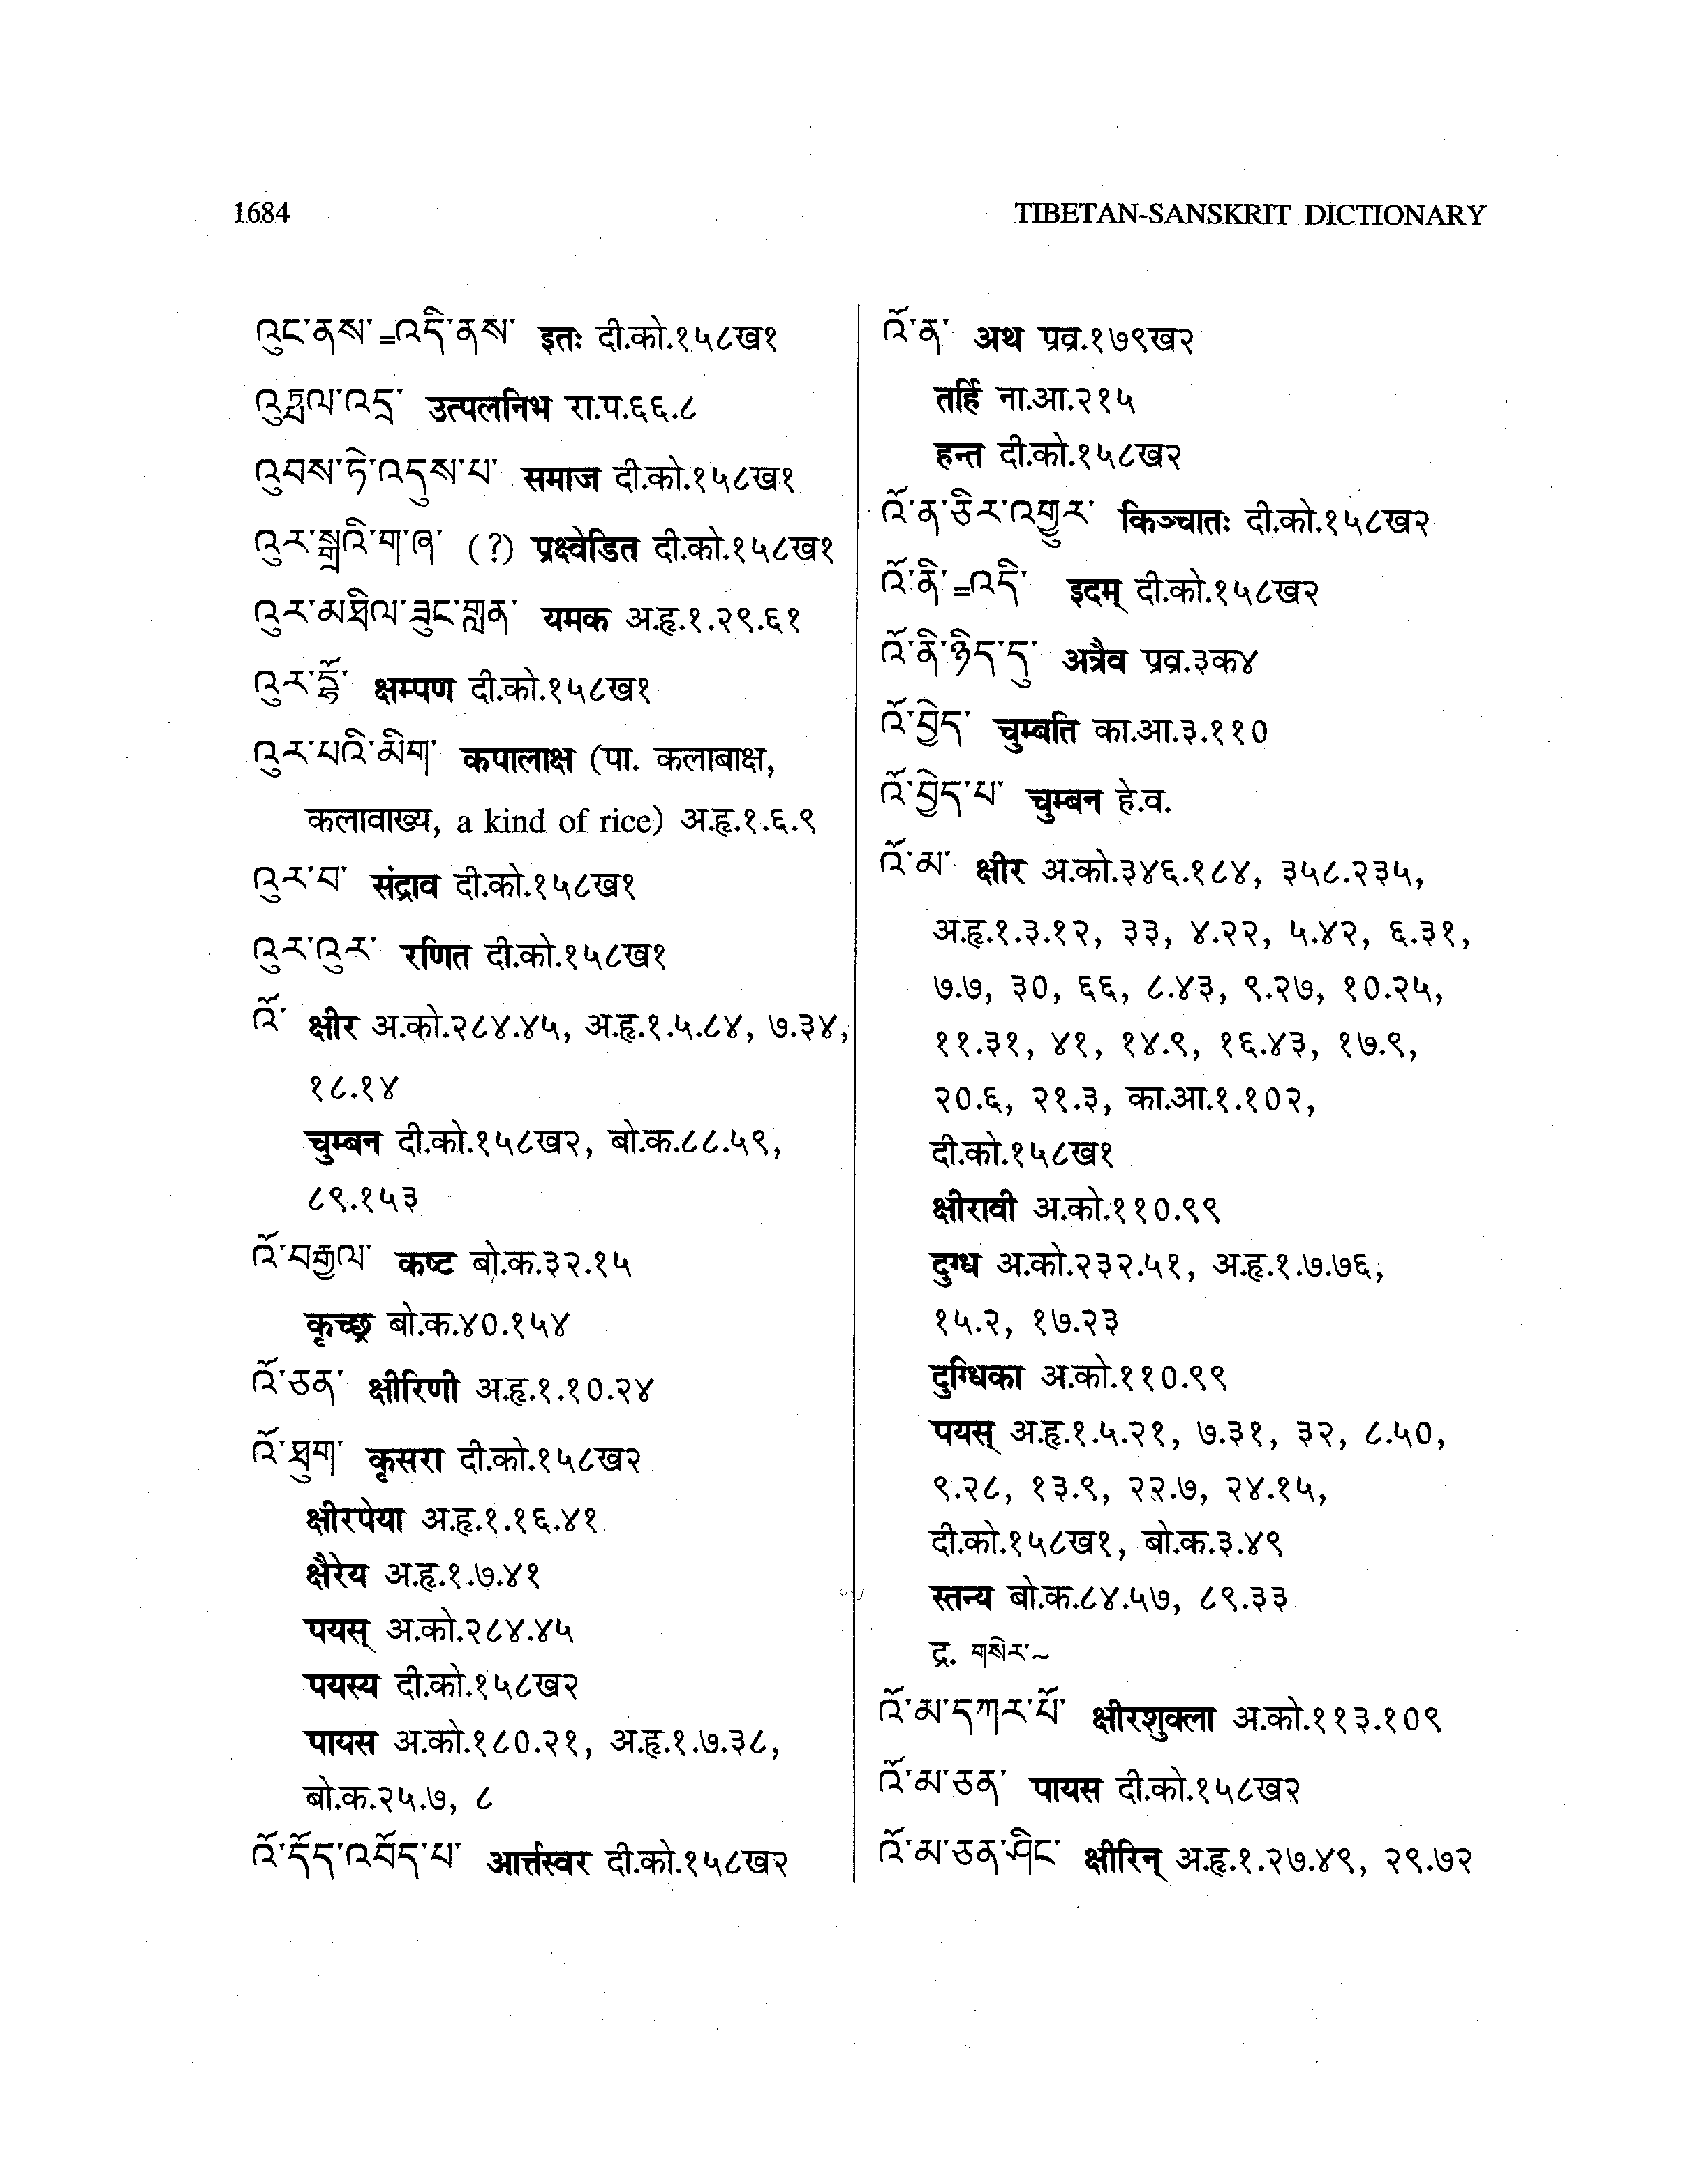 1684
TIBETAN-SANSKRIT DICTIONARY
འུང་ནས་=འདི་ནས་ इतः दी.को.१५८ख१
འུཏྤལ་འདྲ་ उत्पलनिभ रा.प.६६.८
འུབས་ཏེ་འདུས་པ་ समाज दी.को.१५८ख१
འུར་སྒྲའི་ག་ཞ་ (?) प्रक्ष्वेडित दी.को.१५८ख१
འུར་མཐིལ་ཟུང་གླན་ यमक अ.हृ.१.२९.६१
འུར་རྡོ་ क्षम्पण दी.को.१५८ख१
འུར་པའི་མིག་ कपालाक्ष (पा. कलाबाक्ष,
कलावाख्य, a kind of rice) अ.हृ.१.६.९
འུར་བ་ संद्राव दी.को.१५८ख१
འུར་འུར་ रणित दी.को.१५८ख१
འོ་ क्षीर अ.को.२८४.४५, अ.हृ.१.५.८४, ७.३४,
१८.१४
चुम्बन दी.को.१५८ख२, बो.क.८८.५९,
८९.१५३
འོ་བརྒྱལ་ कष्ट बो.क.३२.१५
कृच्छ्र बो.क.४०.१५४
འོ་ཅན་ क्षीरिणी अ.हृ.१.१०.२४
འོ་ཐུག་ कृसरा दी.को.१५८ख२
क्षीरपेया अ.हृ.१.१६.४१
क्षैरेय अ.हृ.१.७.४१
पयस् अ.को.२८४.४५
पयस्य दी.को.१५८ख२
पायस अ.को.१८०.२१, अ.हृ.१.७.३८,
बो.क.२५.७, ८
འོ་དོད་འབོད་པ་ आर्त्तस्वर दी.को.१५८ख२
འོ་ན་ अथ प्रव्र.१७९ख२
तर्हि ना.आ.२१५
हन्त दी.को.१५८ख२
འོ་ན་ཅིར་འགྱུར་ किञ्चातः दी.को.१५८ख२
འོ་ནི་=འདི་ इदम् दी.को.१५८ख२
འོ་ནི་ཉིད་དུ་ अत्रैव प्रव्र.३क४
འོ་བྱེད་ चुम्बति का.आ.३.११०
འོ་བྱེད་པ་ चुम्बन हे.व.
འོ་མ་ क्षीर अ.को.३४६.१८४, ३५८.२३५,
अ.हृ.१.३.१२, ३३, ४.२२, ५.४२, ६.३१,
७.७, ३०, ६६, ८.४३, ९.२७, १०.२५,
११.३१, ४१, १४.९, १६.४३, १७.९,
२०.६, २१.३, का.आ.१.१०२,
दी.को.१५८ख१
क्षीरावी अ.को.११०.९९
दुग्ध अ.को.२३२.५१, अ.हृ.१.७.७६,
१५.२, १७.२३
दुग्धिका अ.को.११०.९९
पयस् अ.हृ.१.५.२१, ७.३१, ३२, ८.५०,
९.२८, १३.९, २२.७, २४.१५,
दी.को.१५८ख१, बो.क.३.४९
स्तन्य बो.क.८४.५७, ८९.३३
द्र. གསེར་~
འོ་མ་དཀར་པོ་ क्षीरशुक्ला अ.को.११३.१०९
འོ་མ་ཅན་ पायस दी.को.१५८ख२
འོ་མ་ཅན་ཤིང་ क्षीरिन् अ.हृ.१.२७.४९, २९.७२